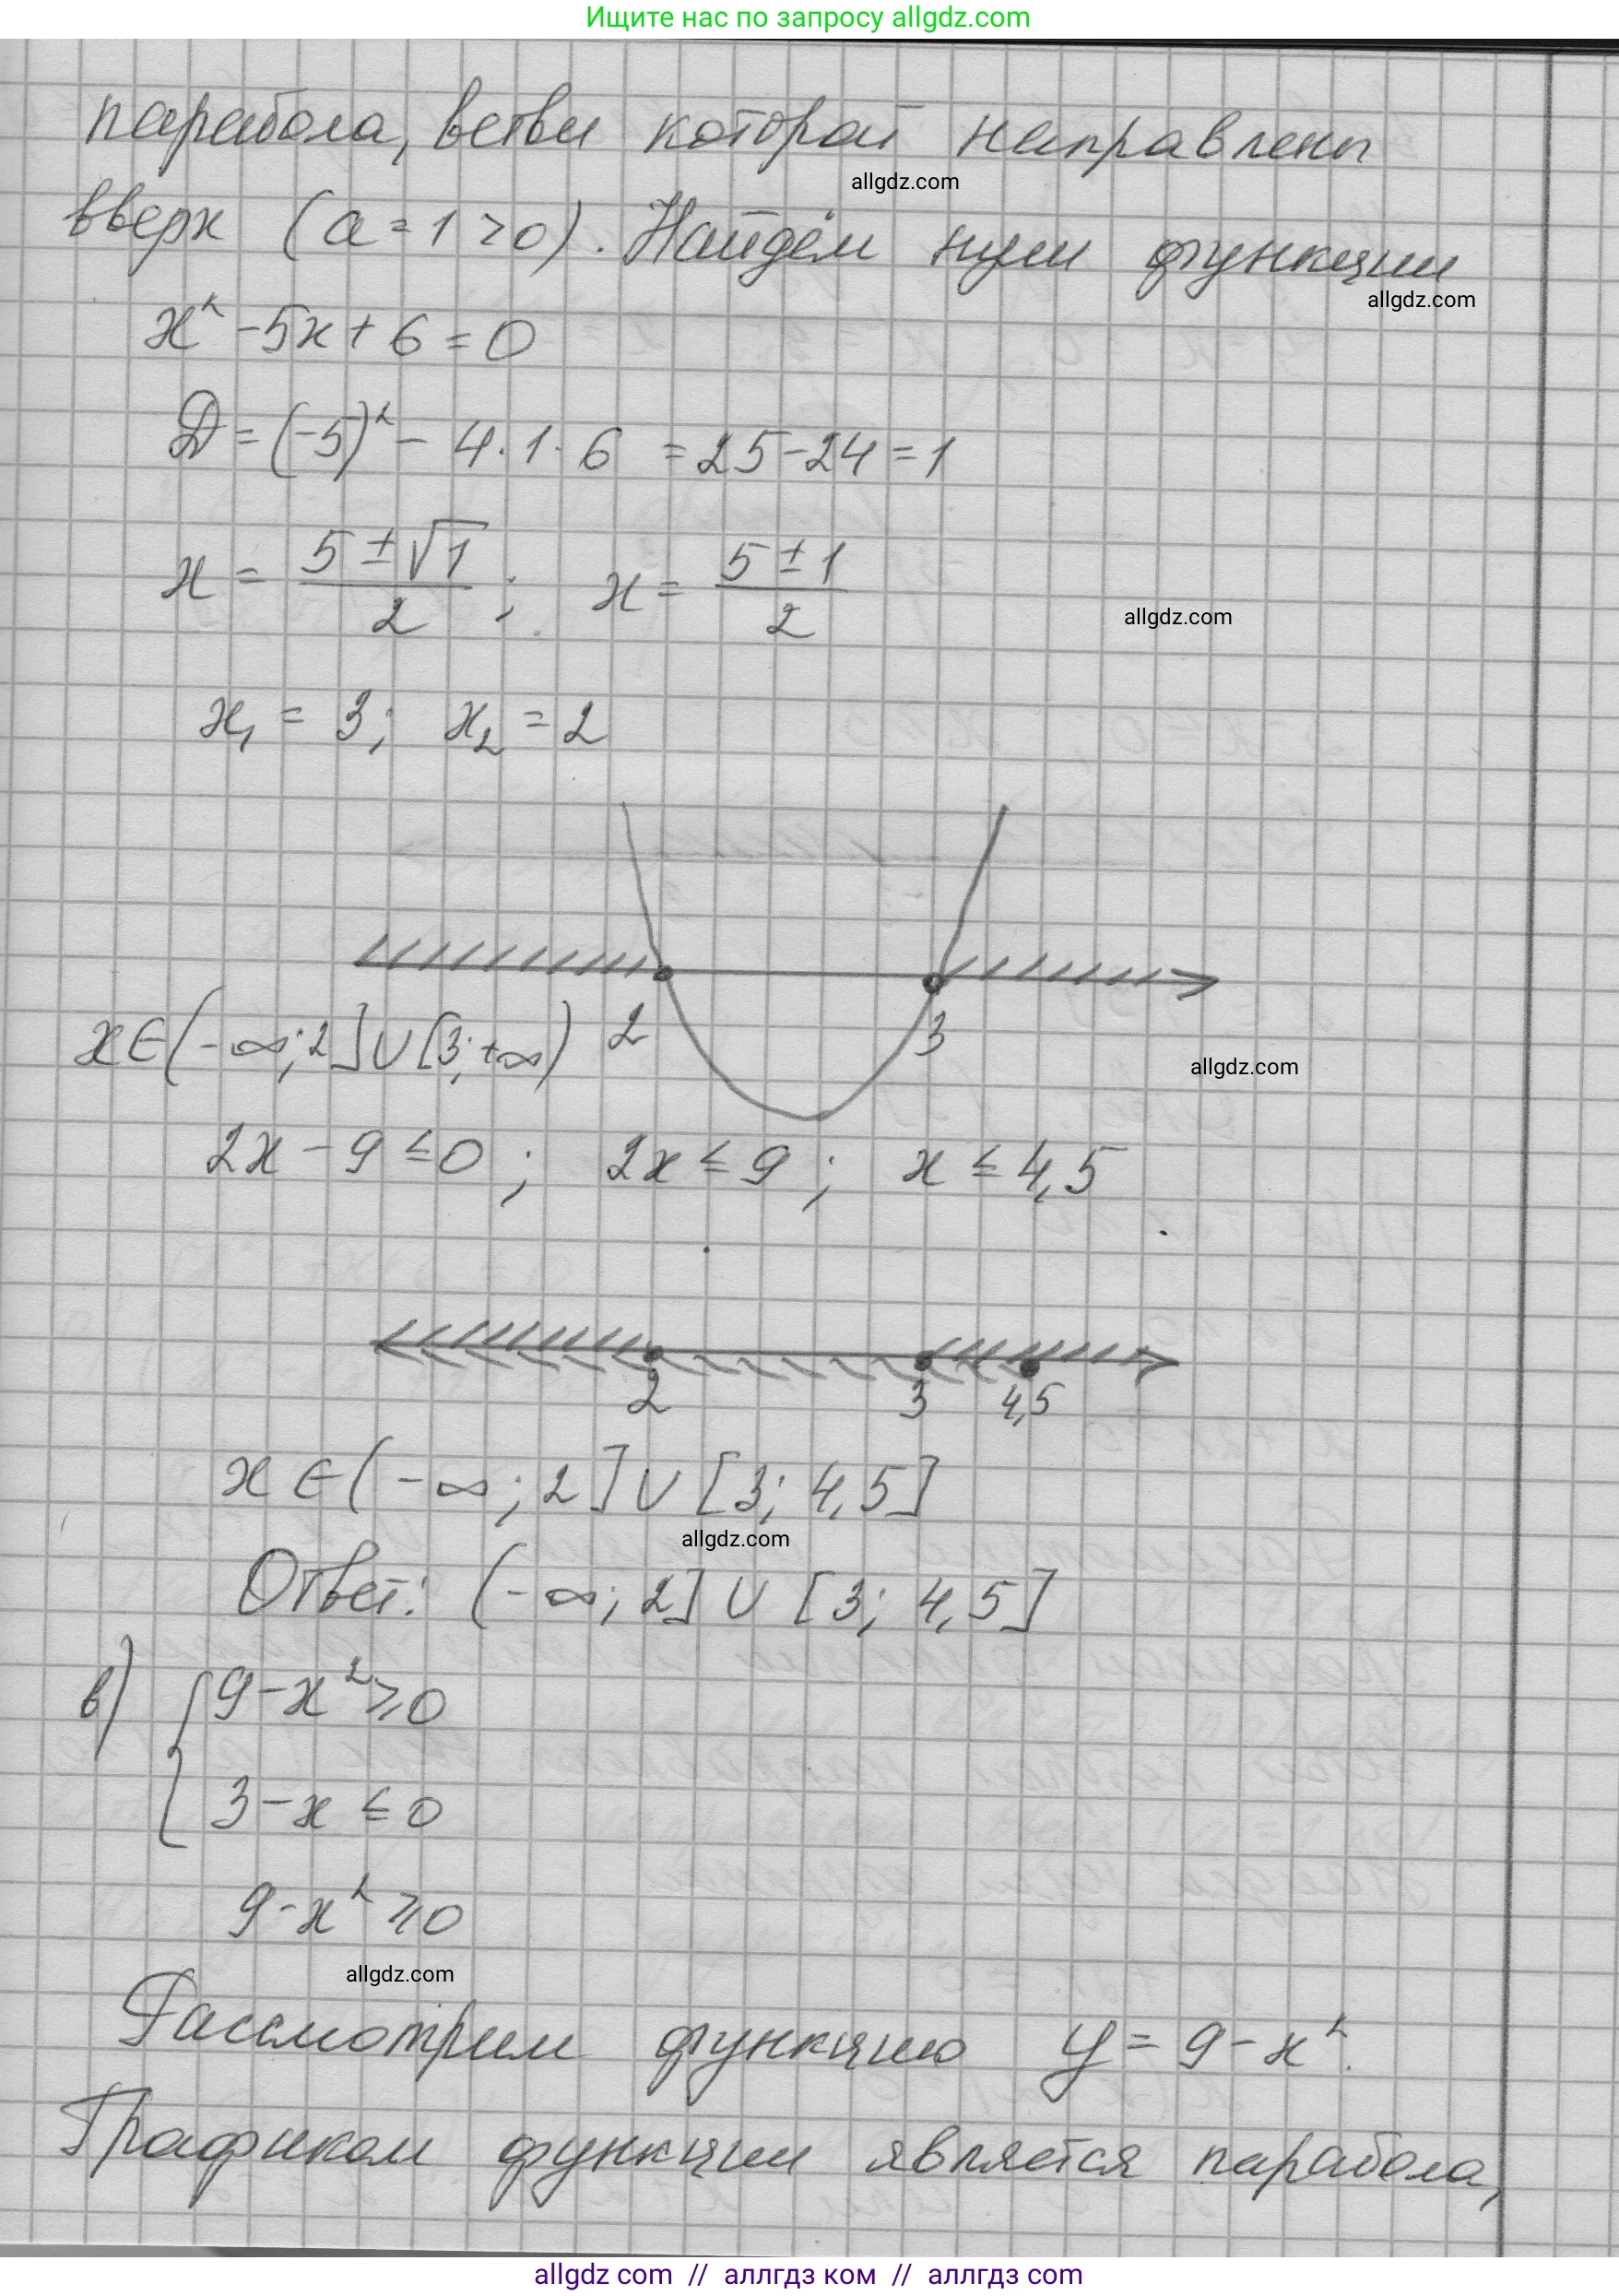 Ищите нас по запросу allgdz.com
парабола, ветви которой направлены
allgdz.com
вверх (a = 1 > 0). Найдём нули функции
allgdz.com
x² - 5x + 6 = 0
D = (-5)² - 4·1·6 = 25 - 24 = 1
x = (5 ± √1)/2; x = (5 ± 1)/2
allgdz.com
x₁ = 3; x₂ = 2
x ∈ (-∞; 2] ∪ [3; +∞) 2 3
allgdz.com
2x - 9 ≤ 0; 2x ≤ 9; x ≤ 4,5
2 3 4,5
x ∈ (-∞; 2] ∪ [3; 4,5]
allgdz.com
Ответ: (-∞; 2] ∪ [3; 4,5]
в) { 9 - x² ≥ 0
3 - x ≤ 0
9 - x² ≥ 0
allgdz.com
Рассмотрим функцию y = 9 - x².
Графиком функции является парабола,
allgdz com // аллгдз ком // allgdz com